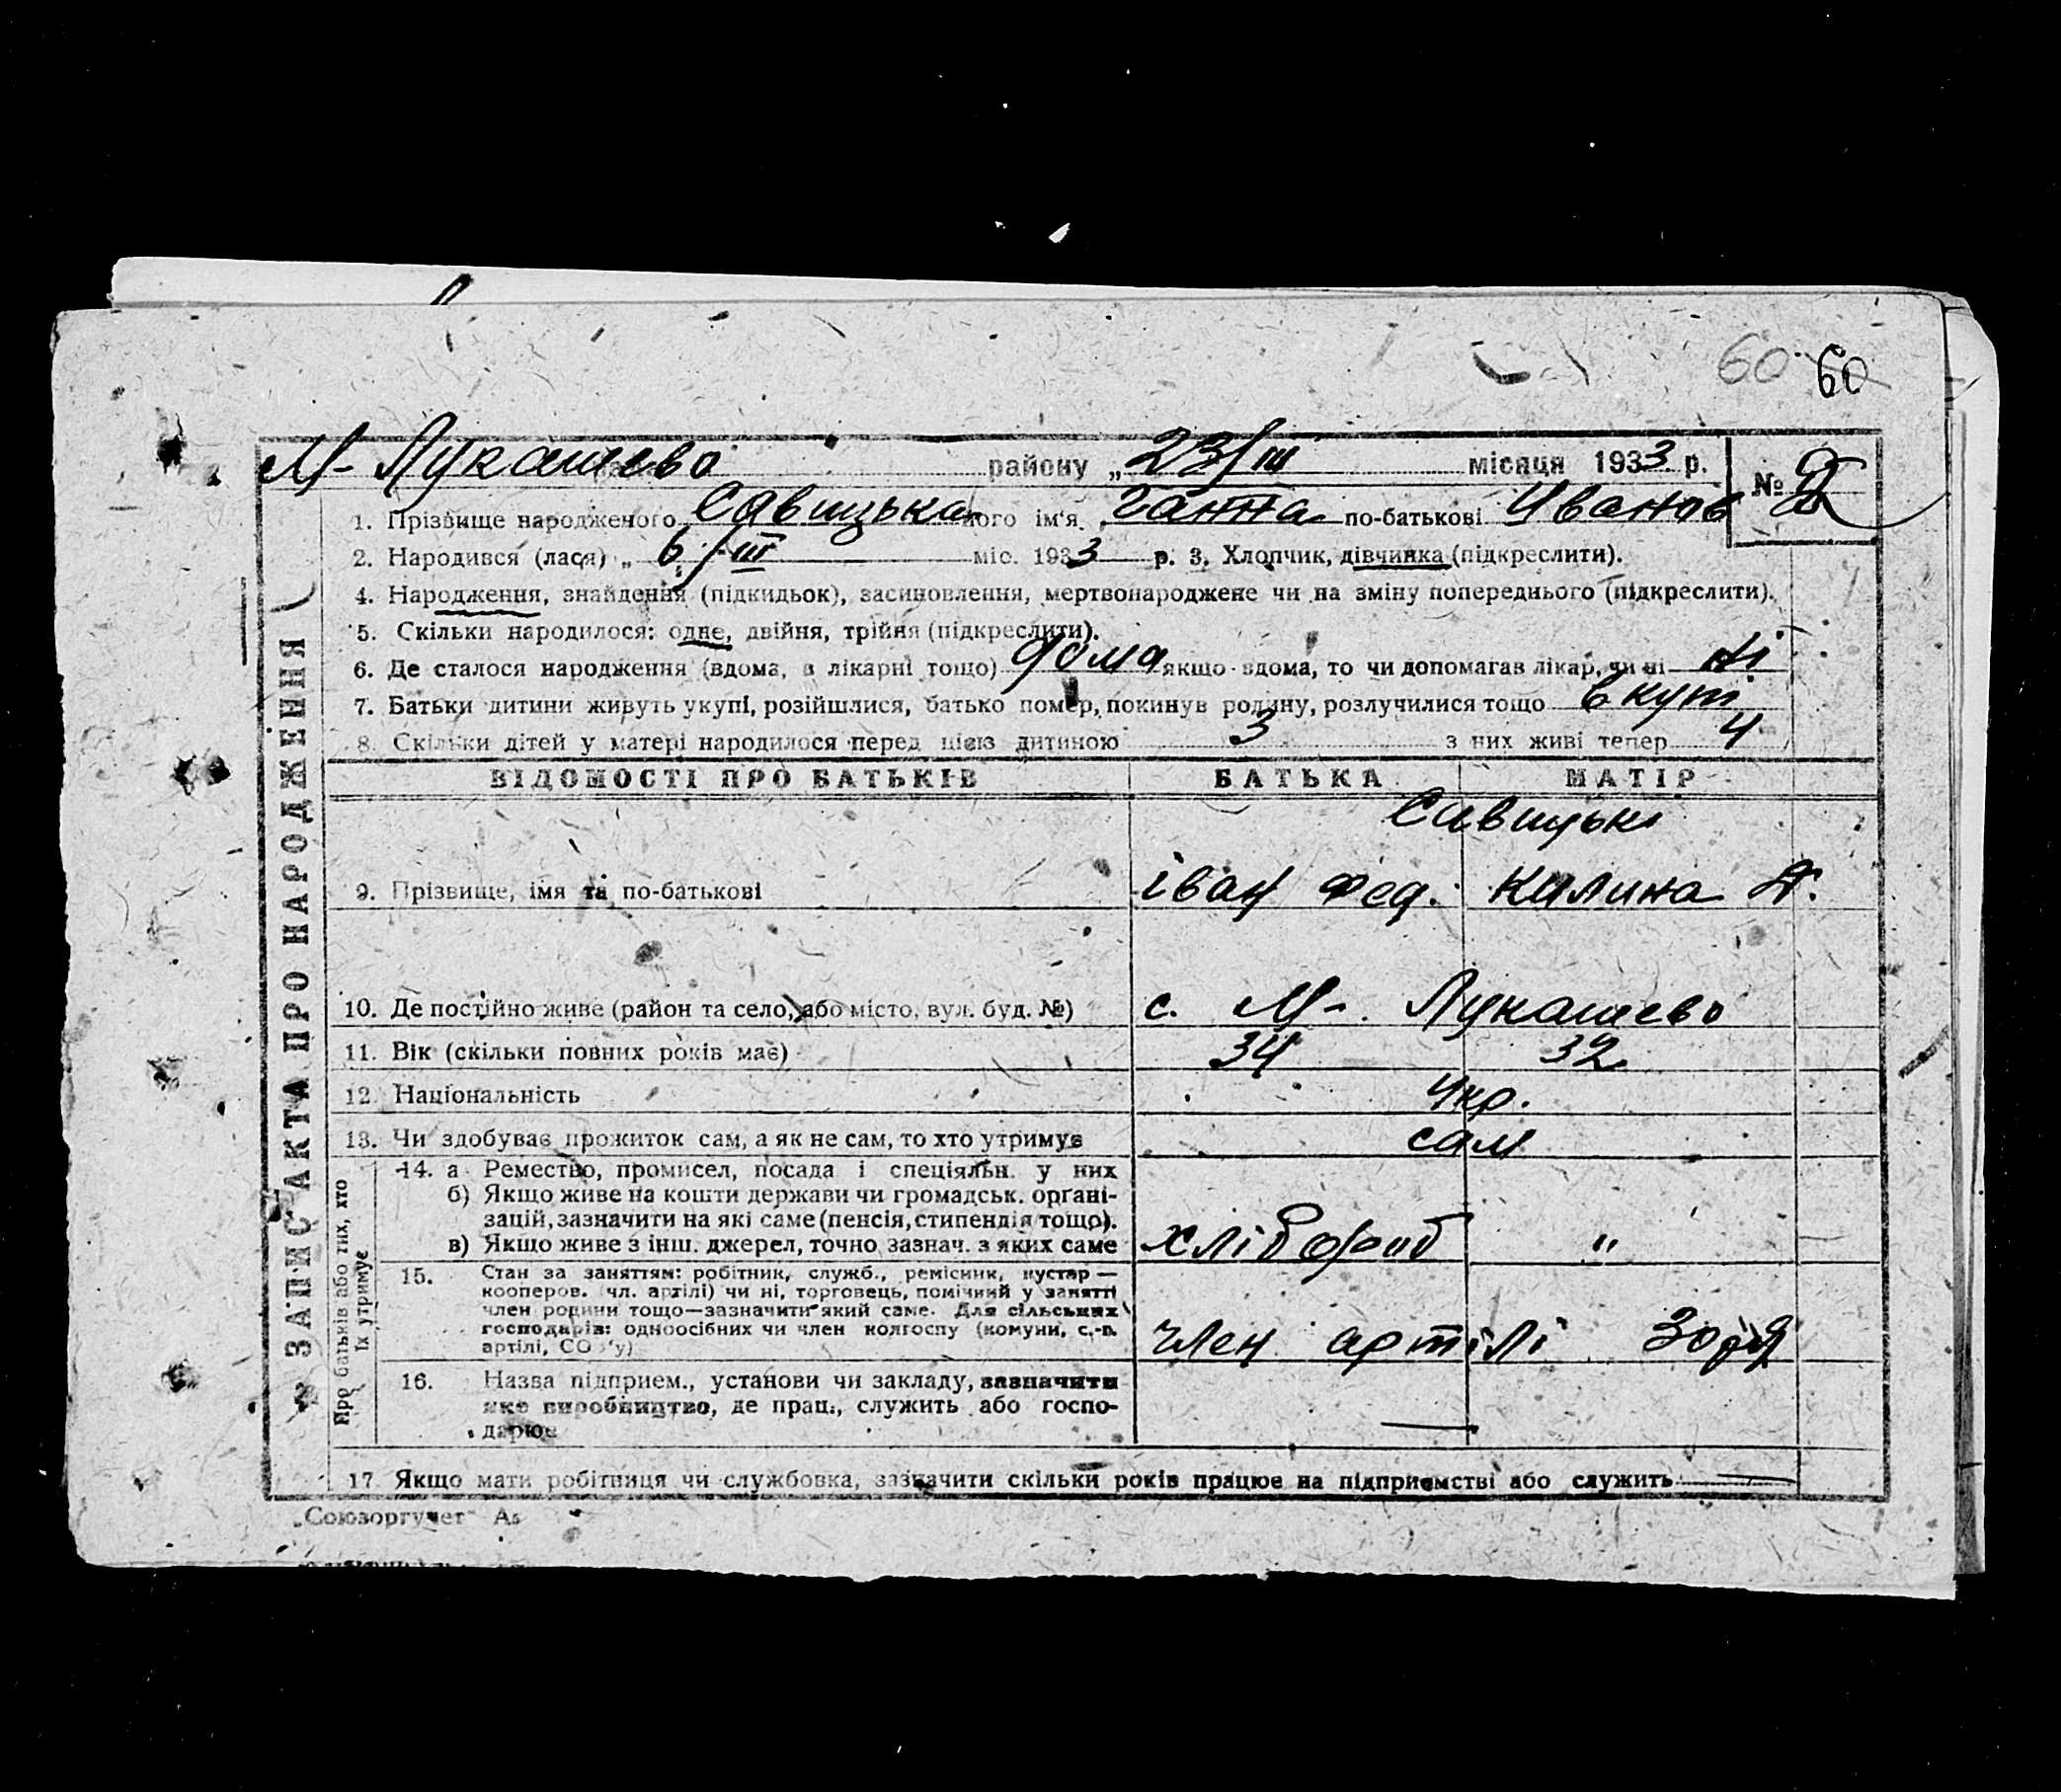 60 60
М- Лукашево району „23/III місяця 1933 р. № 2
1. Прізвище народженого Савицька його ім'я Ганна по-батькові Иванов
2. Народився (лася) „ 6/III міс. 1933 р. 3. Хлопчик, дівчинка (підкреслити).
4. Народження, знайдення (підкидьок), засиновлення, мертвонароджене чи на зміну попереднього (підкреслити).
5. Скільки народилося: одне, двійня, трійня (підкреслити).
6. Де сталося народження (вдома, в лікарні тощо) дома якщо вдома, то чи допомагав лікар, чи ні ні
7. Батьки дитини живуть укупі, розійшлися, батько помер, покинув родину, розлучилися тощо вкупі
8. Скільки дітей у матері народилося перед цією дитиною 3 з них живі тепер 4
ВІДОМОСТІ ПРО БАТЬКІВ БАТЬКА МАТІР
Савицькі
9. Прізвище, імя та по-батькові іван Фед. Калина
10. Де постійно живе (район та село, або місто, вул. буд. №) с. М-. Лукашево
11. Вік (скільки повних років має) 34 32
12 Національність Укр.
13. Чи здобуває прожиток сам, а як не сам, то хто утримує сам
14. а Ремество, промисел, посада і спеціяльн. у них
б) Якщо живе на кошти держави чи громадськ. орґані-
зацій, зазначити на які саме (пенсія, стипендія тощо).
в) Якщо живе з інш. джерел, точно зазнач. з яких саме хлібороб "
15. Стан за заняттям: робітник, служб., ремісник, кустар —
кооперов. чл. артілі) чи ні, торговець, помічний у занятті
член родини тощо—зазначити який саме. Для сільських
господарів: одноосібних чи член колгоспу (комуни, с.-г.
артілі, СО 'у) член артілі
16. Назва підприєм., установи чи закладу, зазначити
яке виробництво, де прац., служить або госпо-
дарює —
17 Якщо мати робітниця чи службовка, зазначити скільки років працює на підприємстві або служить —
ЗАПИС АКТА ПРО НАРОДЖЕННЯ
Про батьків або тих, хто
їх утримує
„Союзоргучет"